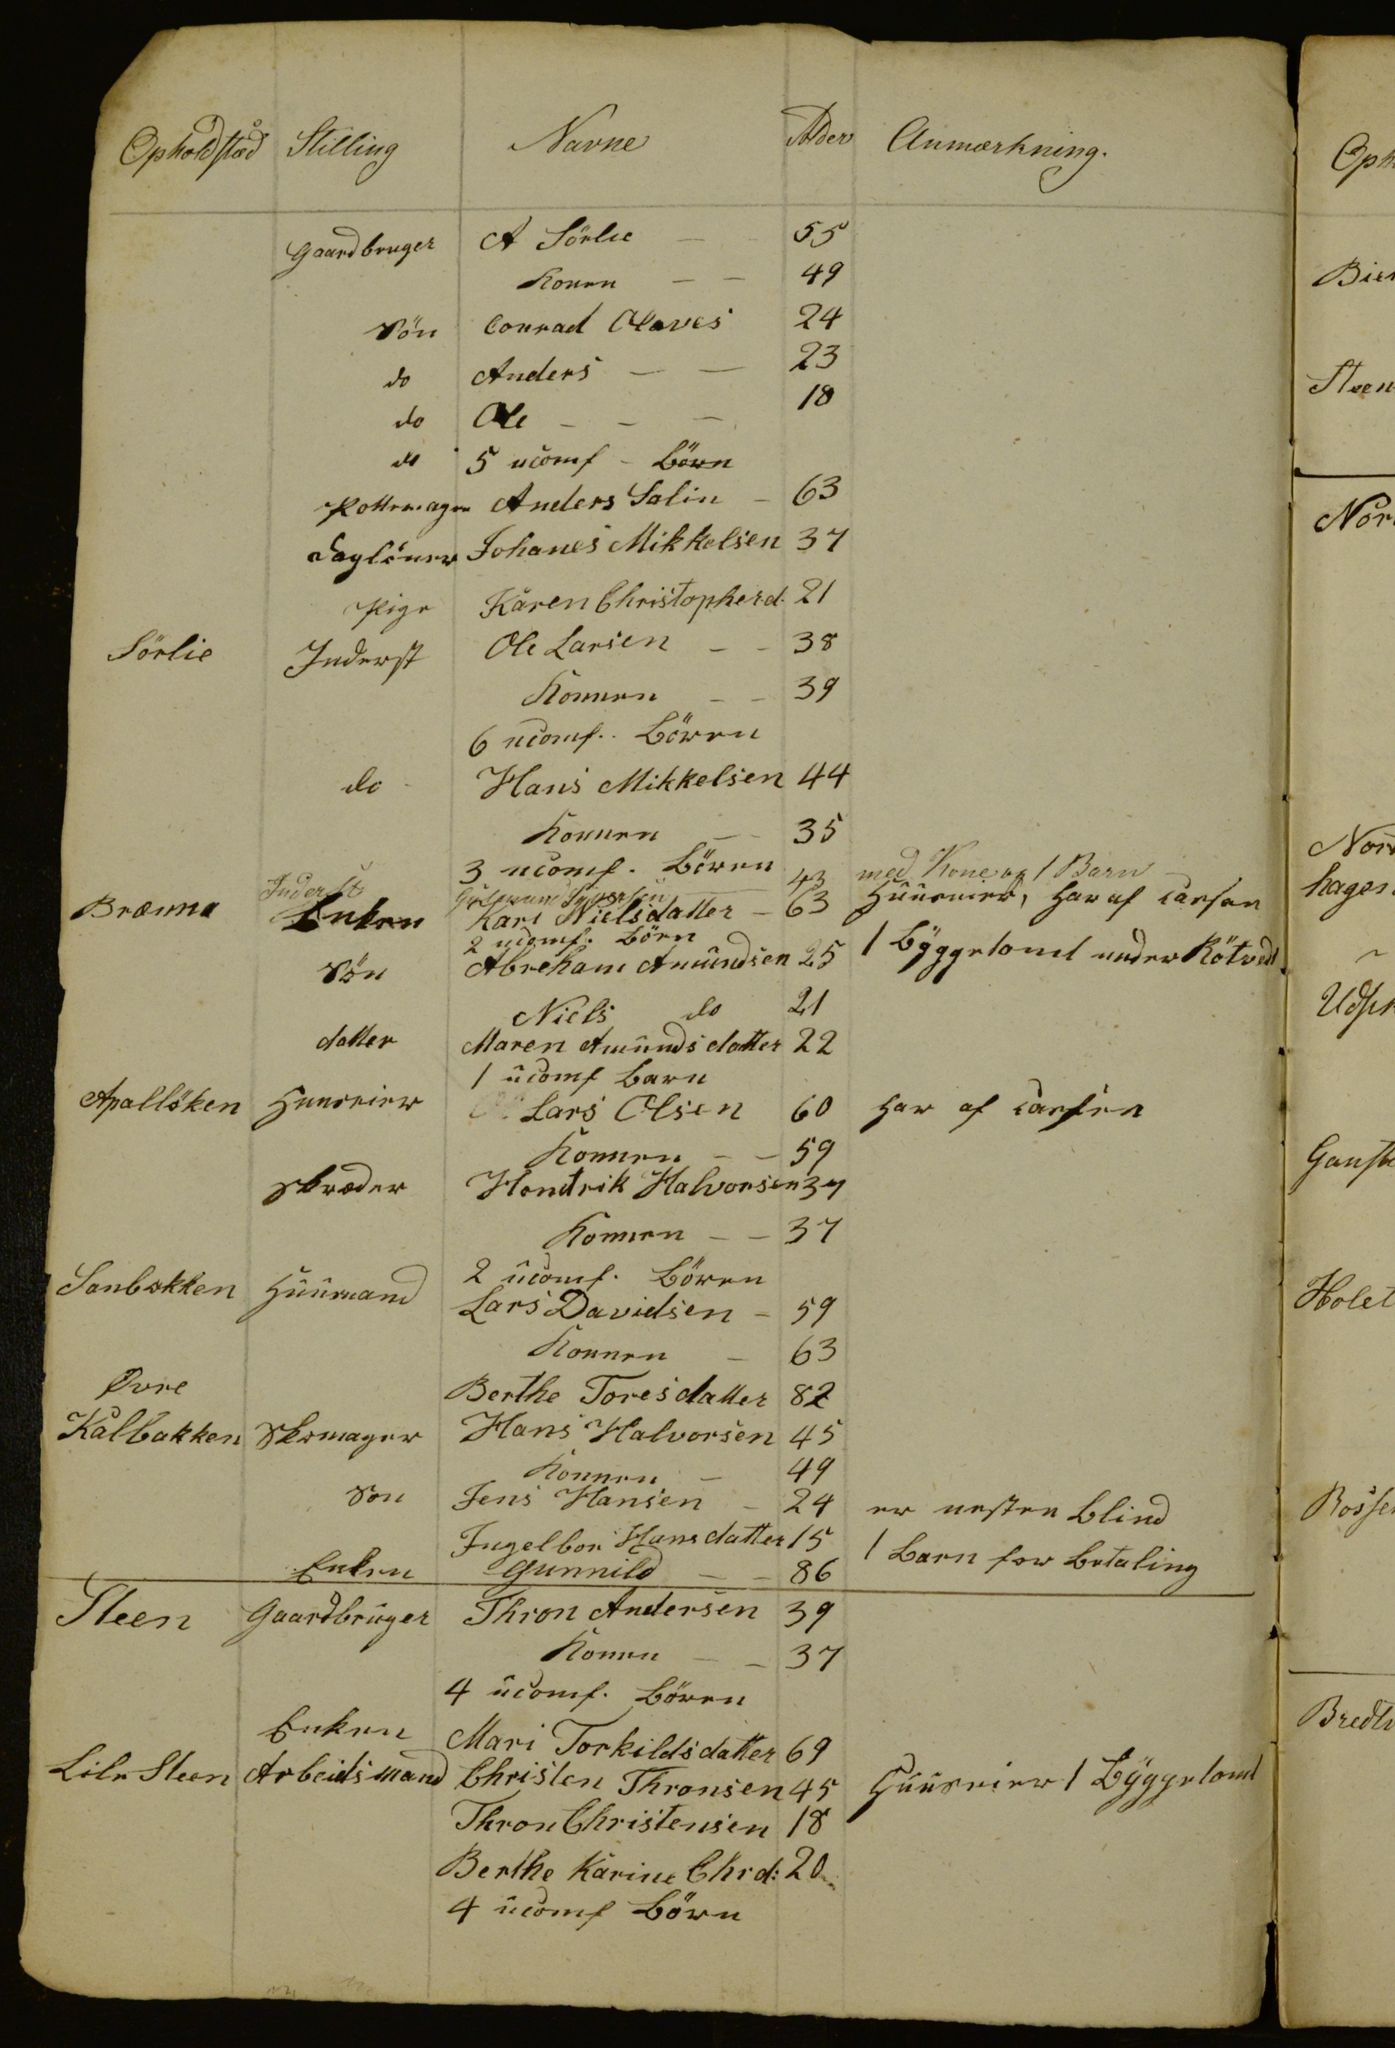 Opholdstæd Stilling Navne Alder Anmærkning.
Gaardbruger A Sörlie — — 55
Konen — — 49
Sön Conrad Olaves 24
do Anders — — 23
do Ole — — — 18
do 5 uconf - Börn
Pottemager Anders Salin — 63
Daglöner Johanes Mikkelsen 37
Pige Karen Christopherd. 21
Sörlie Inderst Ole Larsen — — 38
Konnen — — 39
6 uconf. Bören
do Hans Mikkelsen 44
Konnen — — 35
3 uconf. Bören
Inderst 43 med Kone og 1 Barn
Brænna Enken Kari Nielsdatter — 63 Huuseier, har af
2 uconf. Börn
Sön Abreham Amundsen 25 1 Byggetomt under Rötvedt
Niels do 21
datter Maren Amundsdatter 22
1 uconf Barn
Apallöken Huuseier Lars Olsen 60 har af
Konnen — — 59
Skræder Hendrik Halvorsen 37
Konnen — — 37
2 uconf. Bören
Sanbakken Huusmand Lars Davidsen — 59
Konnen — 63
Berthe Toresdatter 82
Øvre
Kalbakken Skomager Hans Halvorsen 45
Konnen — 49
Son Jens Hansen — 24 er nesten blind
Ingelbor Hansdatter 15 1 Barn for betaling
Enken Gunnild — — 86
Steen Gaardbruger Thron Andersen 39
Konen — — 37
4 uconf. Bören
Enken Mari Torkildsdatter 69
Lile Steen Arbeidsmand Christen Thronsen 45 Huuseier 1 Byggetomt
Thron Christensen 18
Berthe Karine Chrd: 20
4 uconf Börn
Oph
Steen
Nor
hagen
Holet
Bredtv